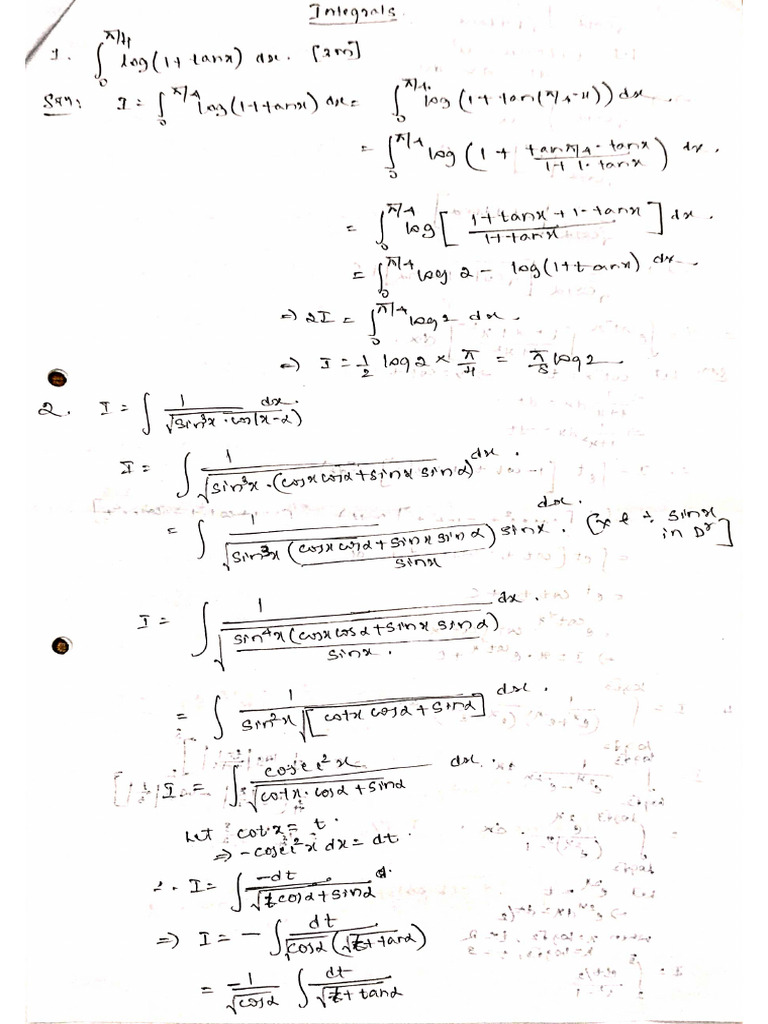 Integrals.
1. ∫₀^{π/4} log(1+tanx) dx. [2m]
Soln: I = ∫₀^{π/4} log(1+tanx) dx = ∫₀^{π/4} log(1+tan(π/4-x)) dx.
= ∫₀^{π/4} log(1 + (tanπ/4 - tanx)/(1+1·tanx)) dx.
= ∫₀^{π/4} log[(1+tanx+1-tanx)/(1+tanx)] dx.
= ∫₀^{π/4} log 2 - log(1+tanx) dx.
⇒ 2I = ∫₀^{π/4} log2 dx.
⇒ I = 1/2 log2 × π/4 = π/8 log2
2. I = ∫ 1/√(sin³x·cos(x-α)) dx.
I = ∫ 1/√(sin³x·(cosxcosα+sinx sinα)) dx.
= ∫ 1/√(sin³x (cosx cosα+sinx sinα)/sinx) sinx. dx. [x & ÷ sinx in Dr]
I = ∫ 1/√(sin⁴x(cosxcosα+sinx sinα)/sinx.) dx.
= ∫ 1/(sin²x√[cotx cosα+sinα]) dx.
I = ∫ cosec²x/√(cotx·cosα+sinα) dx.
Let cotx = t.
⇒ -cosec²x dx = dt.
∴ I = ∫ -dt/√(tcosα+sinα)
⇒ I = - ∫ dt/(√cosα (√t+tanα))
= -1/√cosα ∫ dt/√(t+tanα)